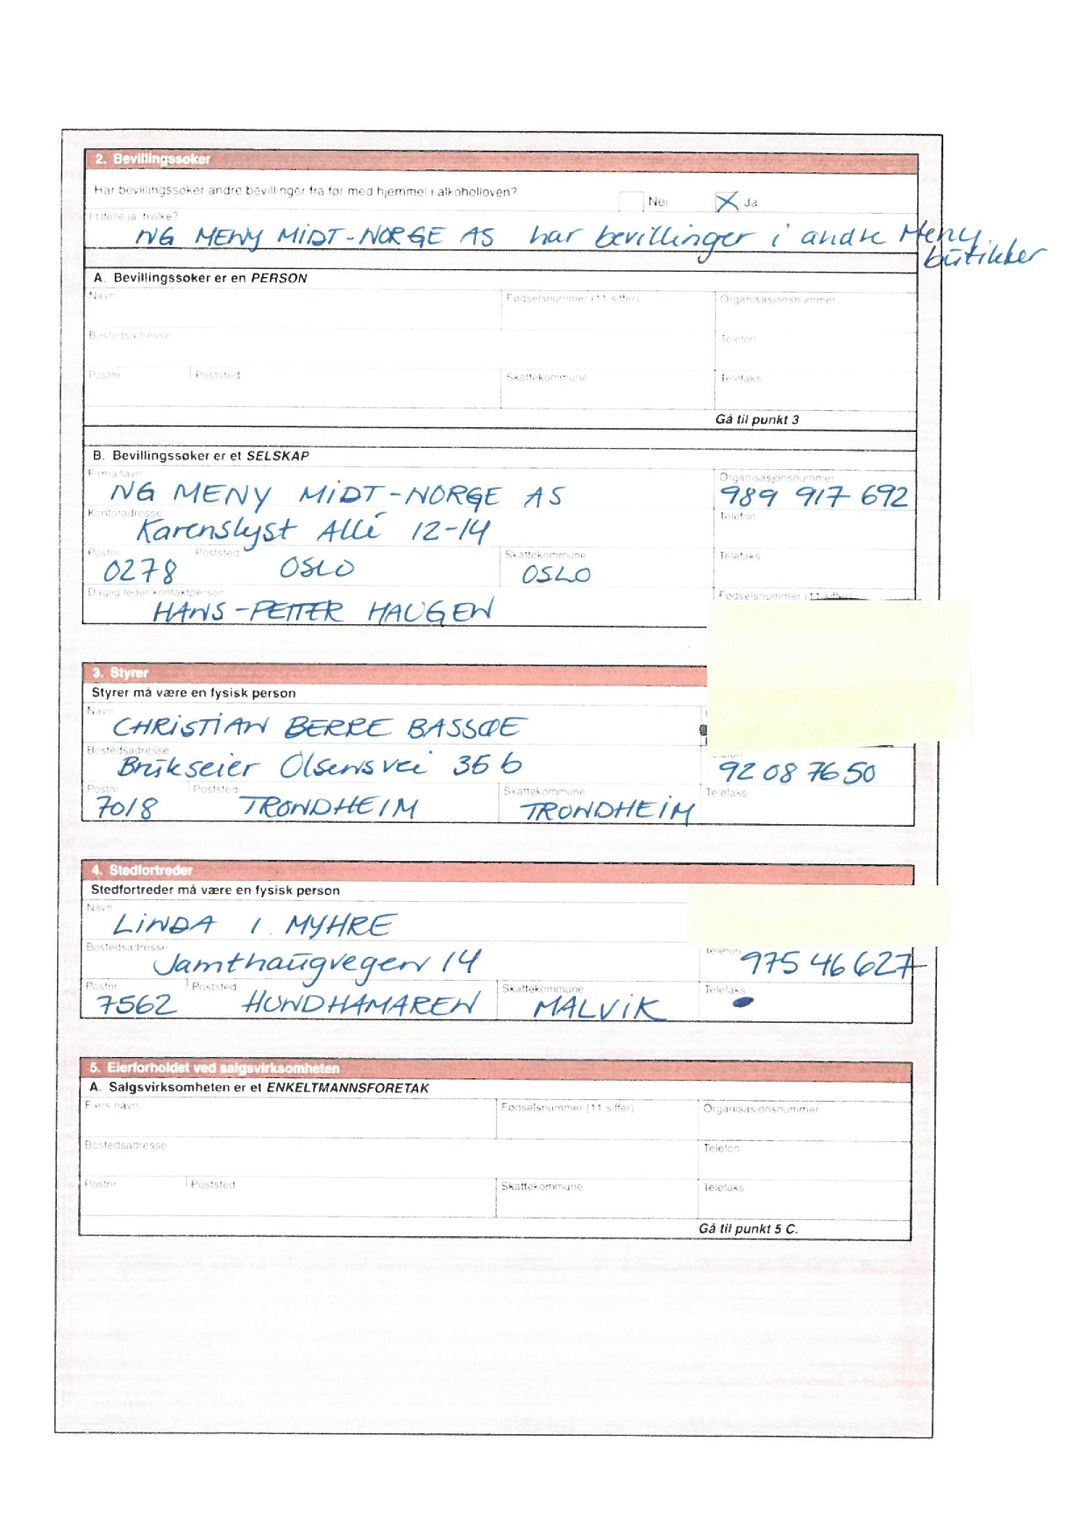 2. Bevillingssøker
Har bevillingssøker andre bevillinger fra før med hjemmel i alkoholloven?
Nei Ja
I tilfelle ja, hvilke?
NG MENY MIDT-NORGE AS har bevillinger i andre Meny
butikker
A. Bevillingssøker er en PERSON
Navn Fødselsnummer (11 siffer) Organisasjonsnummer
Bostedsadresse Telefon
Postnr Poststed Skattekommune Telefaks
Gå til punkt 3
B. Bevillingssøker er et SELSKAP
Firmanavn Organisasjonsnummer
NG MENY MIDT-NORGE AS 989 917 692
Kontoradresse Telefon
Karenslyst Allé 12-14
Postnr Poststed Skattekommune Telefaks
0278 OSLO OSLO
Daglig leder/kontaktperson Fødselsnummer (11 siffer)
HANS-PETTER HAUGEN
3. Styrer
Styrer må være en fysisk person
Navn
CHRISTIAN BERRE BASSØE
Bostedsadresse
Brukseier Olsens vei 36 b 92 08 76 50
Postnr Poststed Skattekommune Telefaks
7018 TRONDHEIM TRONDHEIM
4. Stedfortreder
Stedfortreder må være en fysisk person
Navn
LINDA I. MYHRE
Bostedsadresse Telefon
Jamthaugvegen 14 975 46 627
Postnr Poststed Skattekommune Telefaks
7562 HUNDHAMAREN MALVIK
5. Eierforholdet ved salgsvirksomheten
A. Salgsvirksomheten er et ENKELTMANNSFORETAK
Eiers navn Fødselsnummer (11 siffer) Organisasjonsnummer
Bostedsadresse Telefon
Postnr Poststed Skattekommune Telefaks
Gå til punkt 5 C.